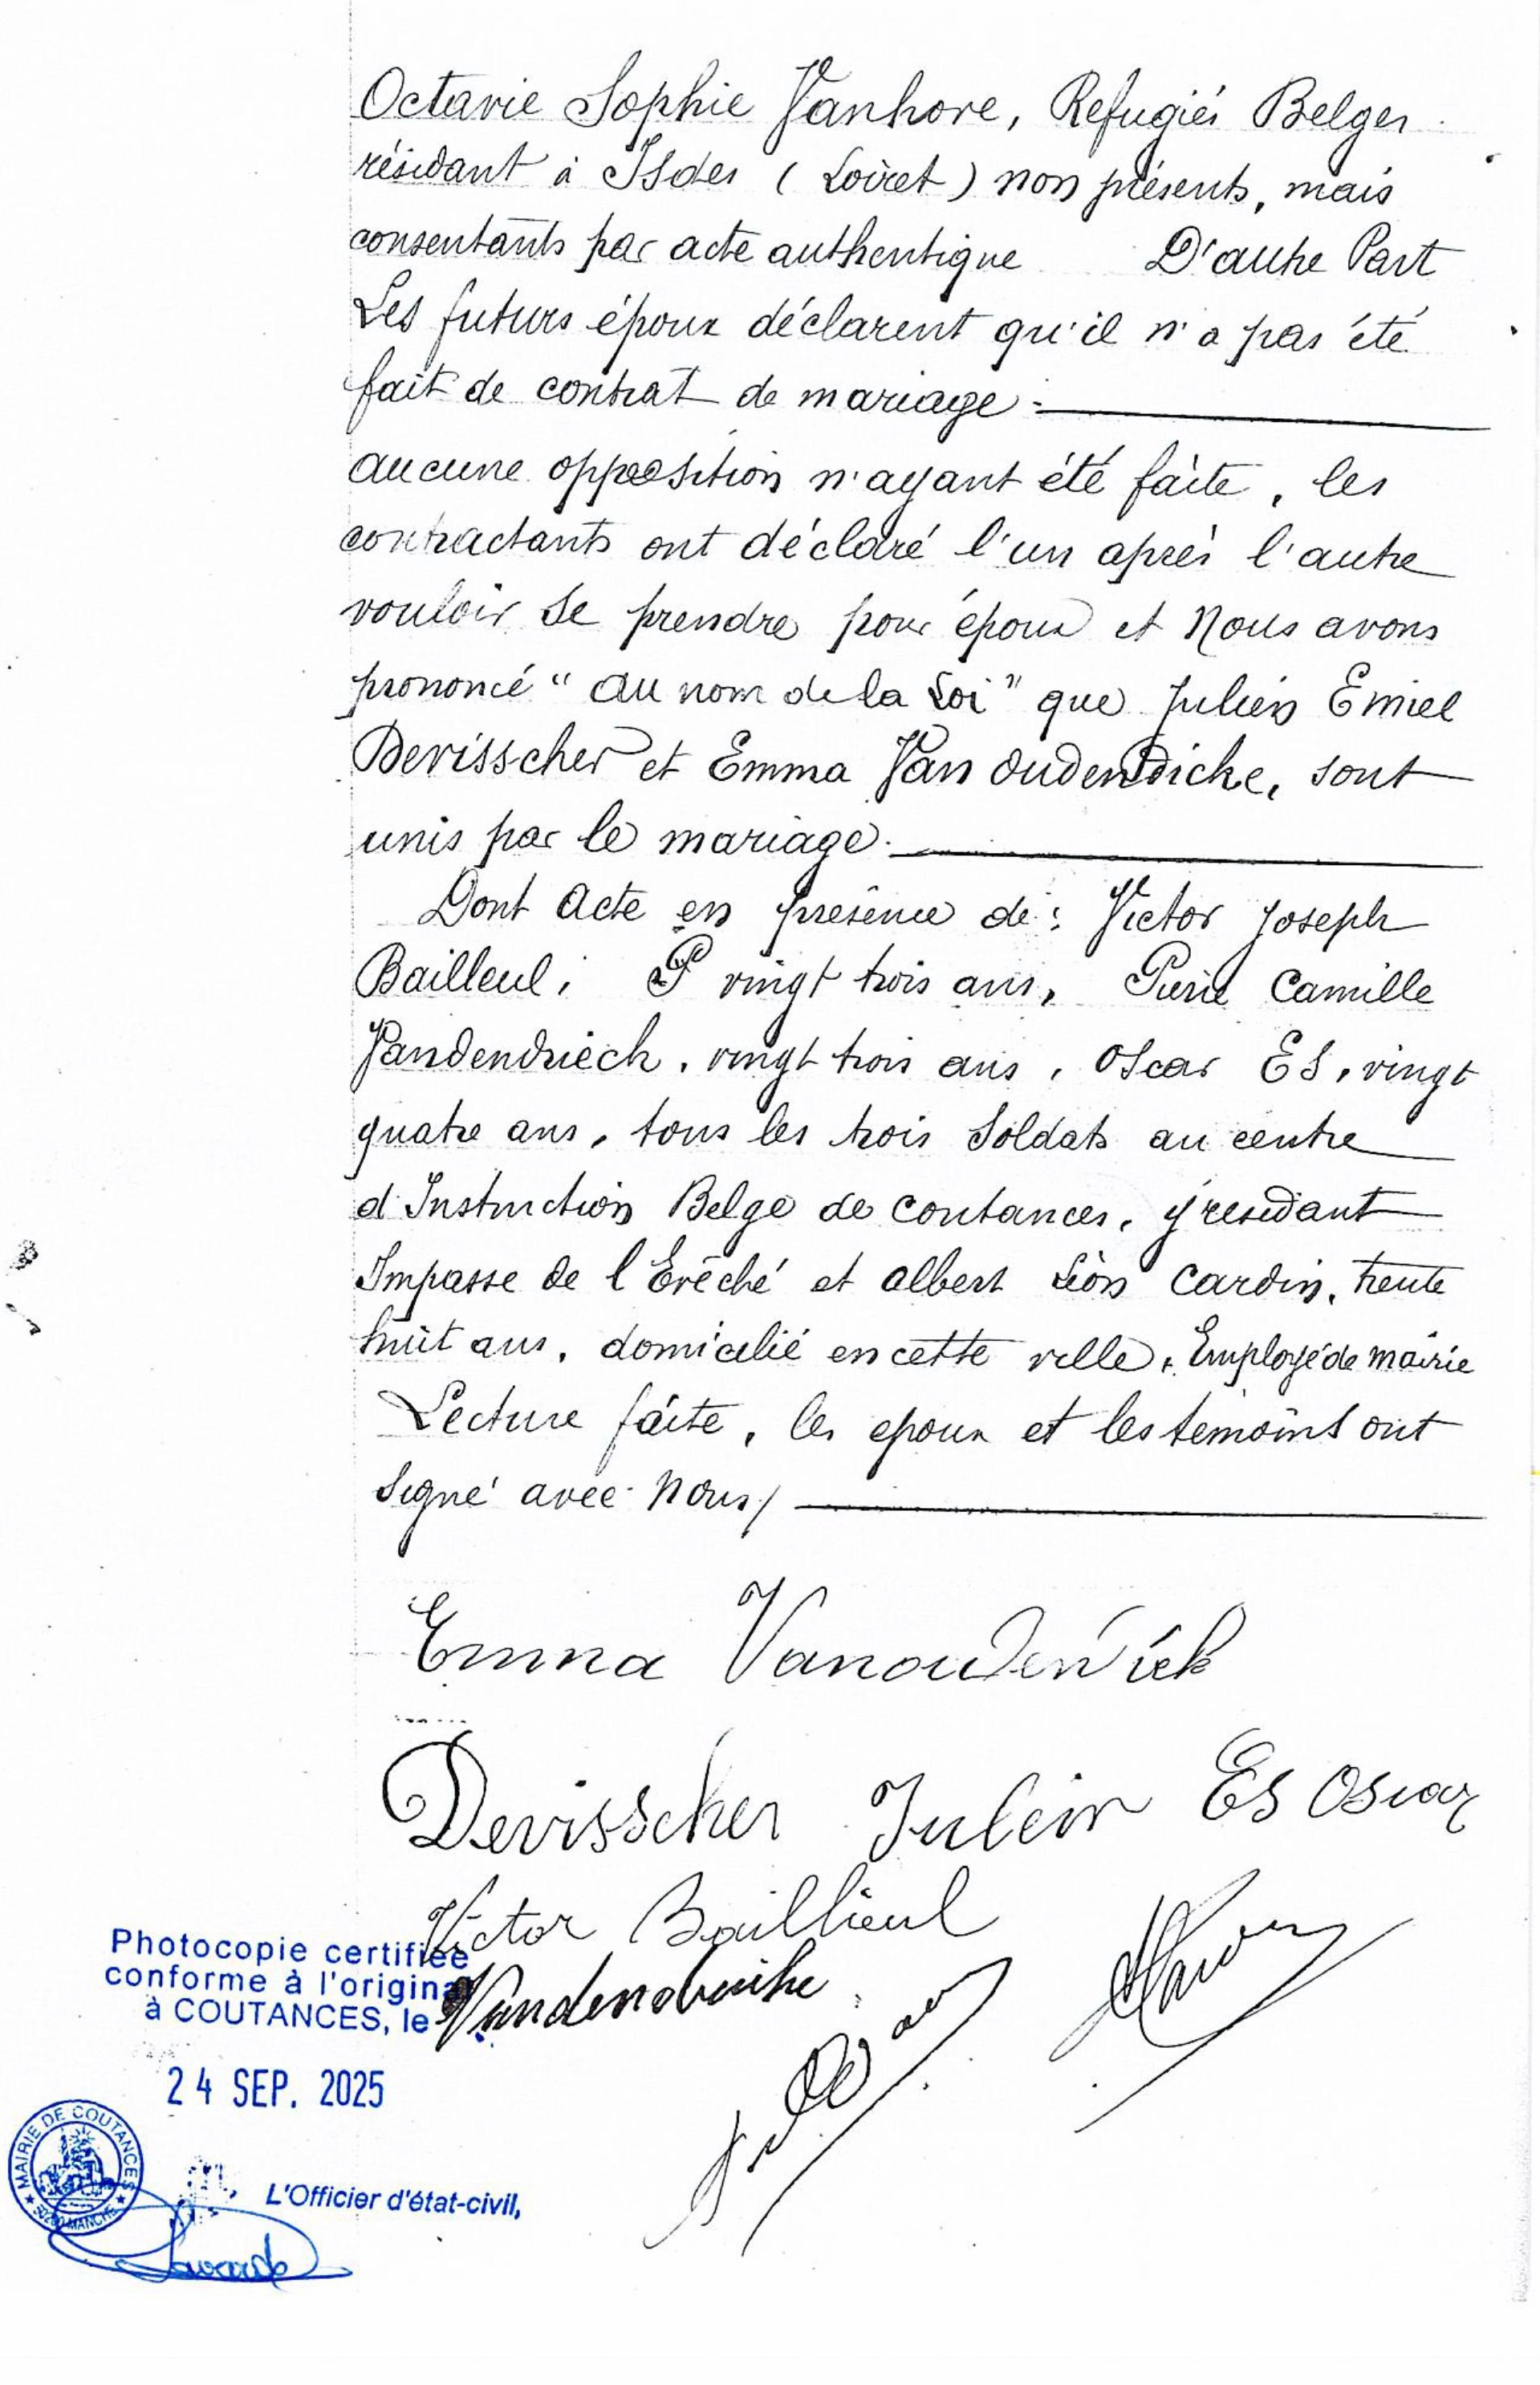 Octavie Sophie Vanhove, Refugiés Belges
résidant à Isdes (Loiret) non présents, mais
consentants par acte authentique D'autre Part
Les futurs époux déclarent qu'il n'a pas été
fait de contrat de mariage.
aucune opposition n'ayant été faite, les
contractants ont déclaré l'un après l'autre
vouloir se prendre pour époux et Nous avons
prononcé "au nom de la Loi" que Julien Emiel
Devisscher et Emma Van OudenDicke, sont
unis par le mariage.
Dont Acte en présence de: Victor Joseph
Bailleul, vingt trois ans, Pierre Camille
Vandendriech, vingt trois ans, Oscar ES, vingt
quatre ans, tous les trois Soldats au centre
d'Instruction Belge de Coutances, y residant
Impasse de l'Evêché et Albert Léon Cardin, trente
huit ans, domicilié en cette ville, Employé de mairie
Lecture faite, les epoux et les temoins ont
signé avec Nous/
Emma Vanoudendick
Devisscher Julien ES Oscar
Victor Baillieul
Photocopie certifiée
conforme à l'original
à COUTANCES, le
24 SEP. 2025
MAIRIE DE COUTANCES
MANCHE
L'Officier d'état-civil,